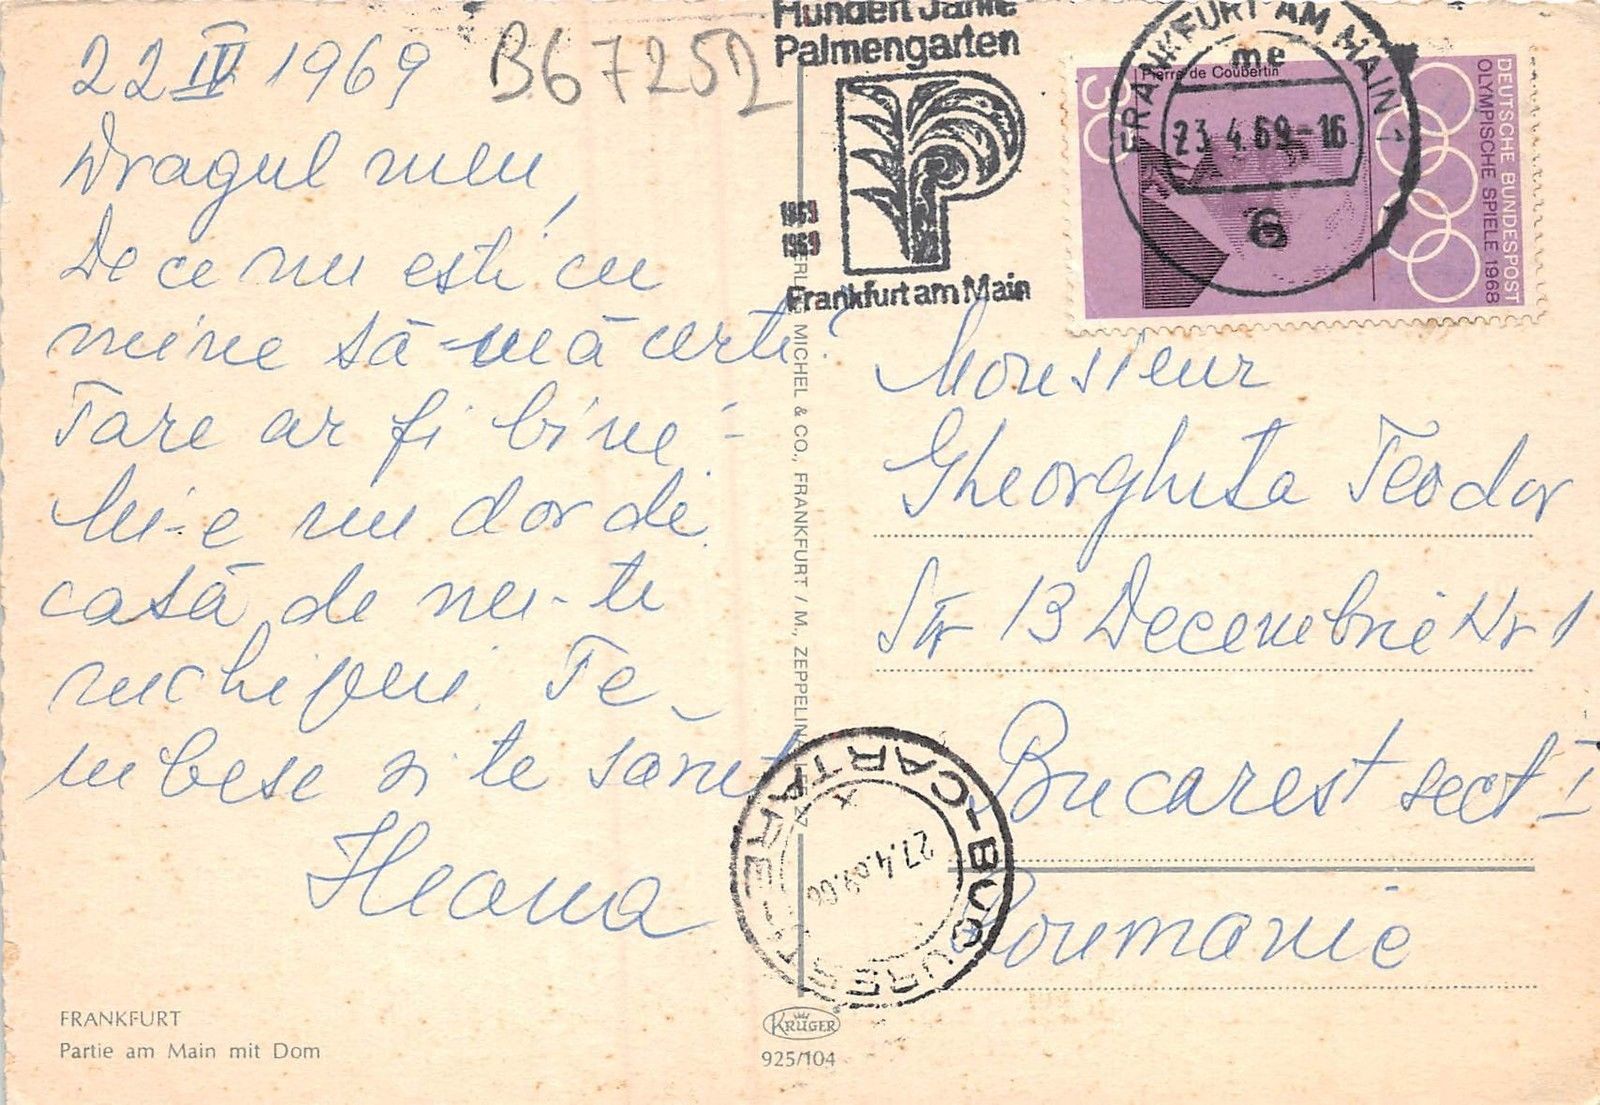 22 IV 1969
B67252
Dragul meu,
De ce nu ești cu
mine să-mă cerți?
Tare ar fi bine!
Mi-e nu dor de
casă de nu-ti
închipui. Te
iubesc si te sarut
Ileana
FRANKFURT
Partie am Main mit Dom
Hundert Jahre
Palmengarten
1869
1969
Frankfurt am Main
FRANKFURT AM MAIN 1
me
23.4.69-16
6
Pierre de Coubertin
30
DEUTSCHE BUNDESPOST
OLYMPISCHE SPIELE 1968
MICHEL & CO., FRANKFURT / M., ZEPPELIN
Monsieur
Gheorghita Teodor
Str 13 Decembrie Nr 1
Bucarest sect I
Roumanie
BUCUREȘTI
CARTARE
27.4.69
KRÜGER
925/104